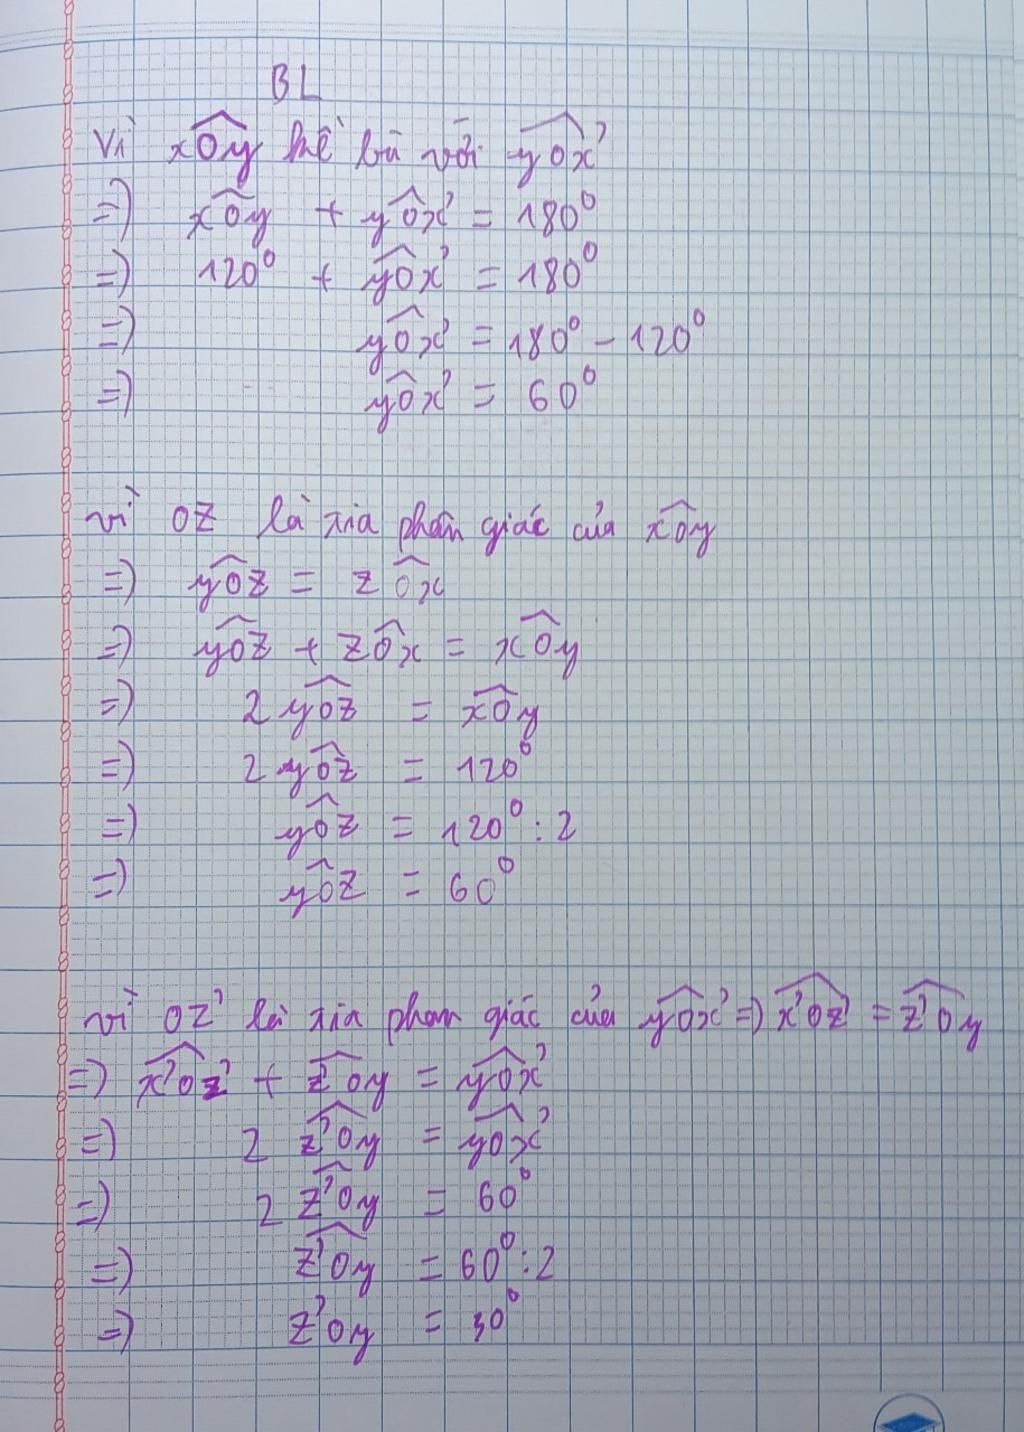 BL
Vì xÔy kề bù với yÔx'
=> xÔy + yÔx' = 180⁰
=> 120⁰ + yÔx' = 180⁰
=> yÔx' = 180⁰ - 120⁰
=> yÔx' = 60⁰
vì OZ là tia phân giác của xÔy
=> yÔz = zÔx
=> yÔz + zÔx = xÔy
=> 2 yÔz = xÔy
=> 2 yÔz = 120⁰
=> yÔz = 120⁰ : 2
=> yÔz = 60⁰
vì OZ' là tia phan giác của yÔx' => x'Ôz' = z'Ôy
=> x'Ôz' + z'Ôy = yÔx'
=> 2 z'Ôy = yÔx'
=> 2 z'Ôy = 60⁰
=> z'Ôy = 60⁰ : 2
=> z'Oy = 30⁰